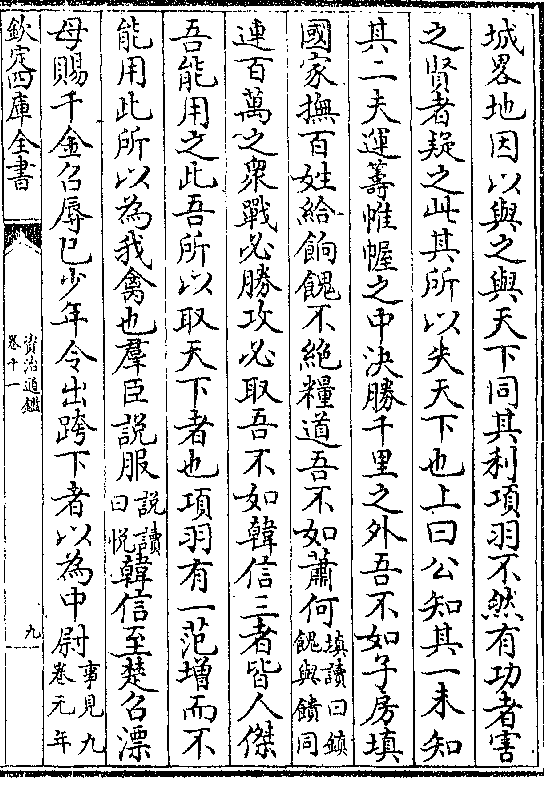 城畧地因以與之與天下同其利項羽不然有功者害
之賢者疑之此其所以失天下也上曰公知其一未知
其二夫運籌帷幄之中決勝千里之外吾不如子房填
國家撫百姓給餉餽不絶糧道吾不如蕭何填讀曰鎮餽與饋同
連百萬之衆戰必勝攻必取吾不如韓信三者皆人傑
吾能用之此吾所以取天下者也項羽有一范增而不
能用此所以為我禽也羣臣說服說讀曰悅韓信至楚召漂
母賜千金召辱已少年令出跨下者以為中尉事見九卷元年
欽定四庫全書
資治通鑑
卷十一
九